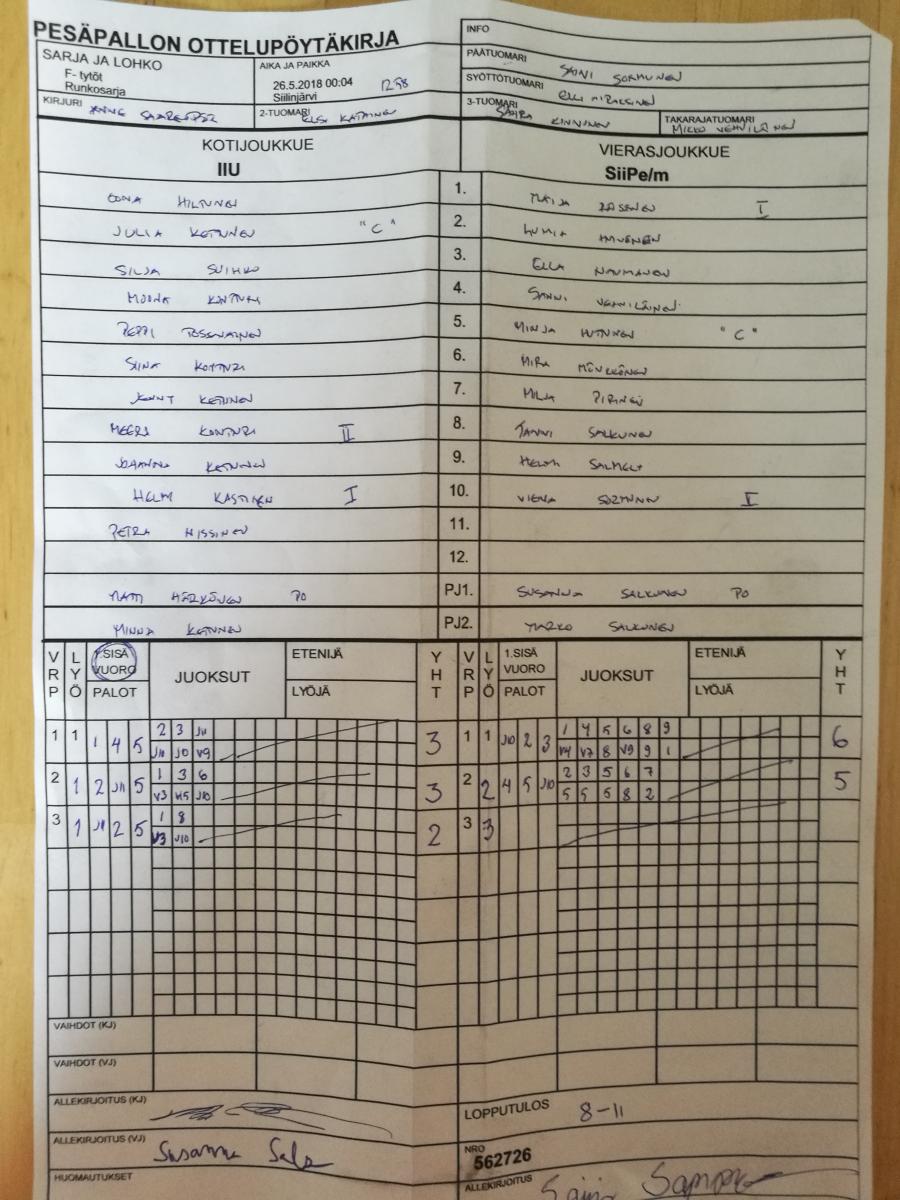 PESÄPALLON OTTELUPÖYTÄKIRJA
INFO
SARJA JA LOHKO
F- tytöt
Runkosarja
AIKA JA PAIKKA
26.5.2018 00:04
Siilinjärvi
PÄÄTUOMARI SANI SORMUNEN
SYÖTTÖTUOMARI ELLI
KIRJURI
2-TUOMARI ELSI
3-TUOMARI KINNUNEN
TAKARAJATUOMARI MIKKO VEHVILÄINEN
KOTIJOUKKUE
IIU
VIERASJOUKKUE
SiiPe/m
OONA HILTUNEN 1. MAIJA I
JULIA KETTUNEN "C" 2. LUMIA
SILJA SUIHKO 3. ELLA
MOONA KONTTURI 4. SANNI VEHVILÄINEN
PEPPI 5. MINJA "C"
SIINA KONTTURI 6. MIRA MÖNKKÖNEN
JENNI KETTUNEN 7. MILJA PIRINEN
MEERI KONTTURI II 8. TANNI SALKUNEN
JOANNA KETTUNEN 9. HELMI
HELMI I 10. VIENA SORMUNEN
PETRA NISSINEN 11.
12.
MATTI HÄRKÖNEN PO PJ1. SUSANNA SALKUNEN PO
MINNA KETTUNEN PJ2. MARKO SALKUNEN
VRP LYÖ 1.SISÄ VUORO PALOT JUOKSUT ETENIJÄ LYÖJÄ YHT VRP LYÖ 1.SISÄ VUORO PALOT JUOKSUT ETENIJÄ LYÖJÄ YHT
1 1 1 4 5 2 3 J11 3 1 1 J10 2 3 1 4 5 6 8 9 6
J11 J0 V9 V4 V7 8 V9 9 1
2 1 2 J11 5 1 3 6 3 2 2 4 5 J10 2 3 5 6 7 5
V3 J10 5 5 5 8 2
3 1 J11 2 5 1 8 2 3 3
V3 J10
VAIHDOT (KJ)
VAIHDOT (VJ)
ALLEKIRJOITUS (KJ)
LOPPUTULOS 8-11
ALLEKIRJOITUS (VJ) Susanna
NRO
562726
HUOMAUTUKSET
ALLEKIRJOITUS